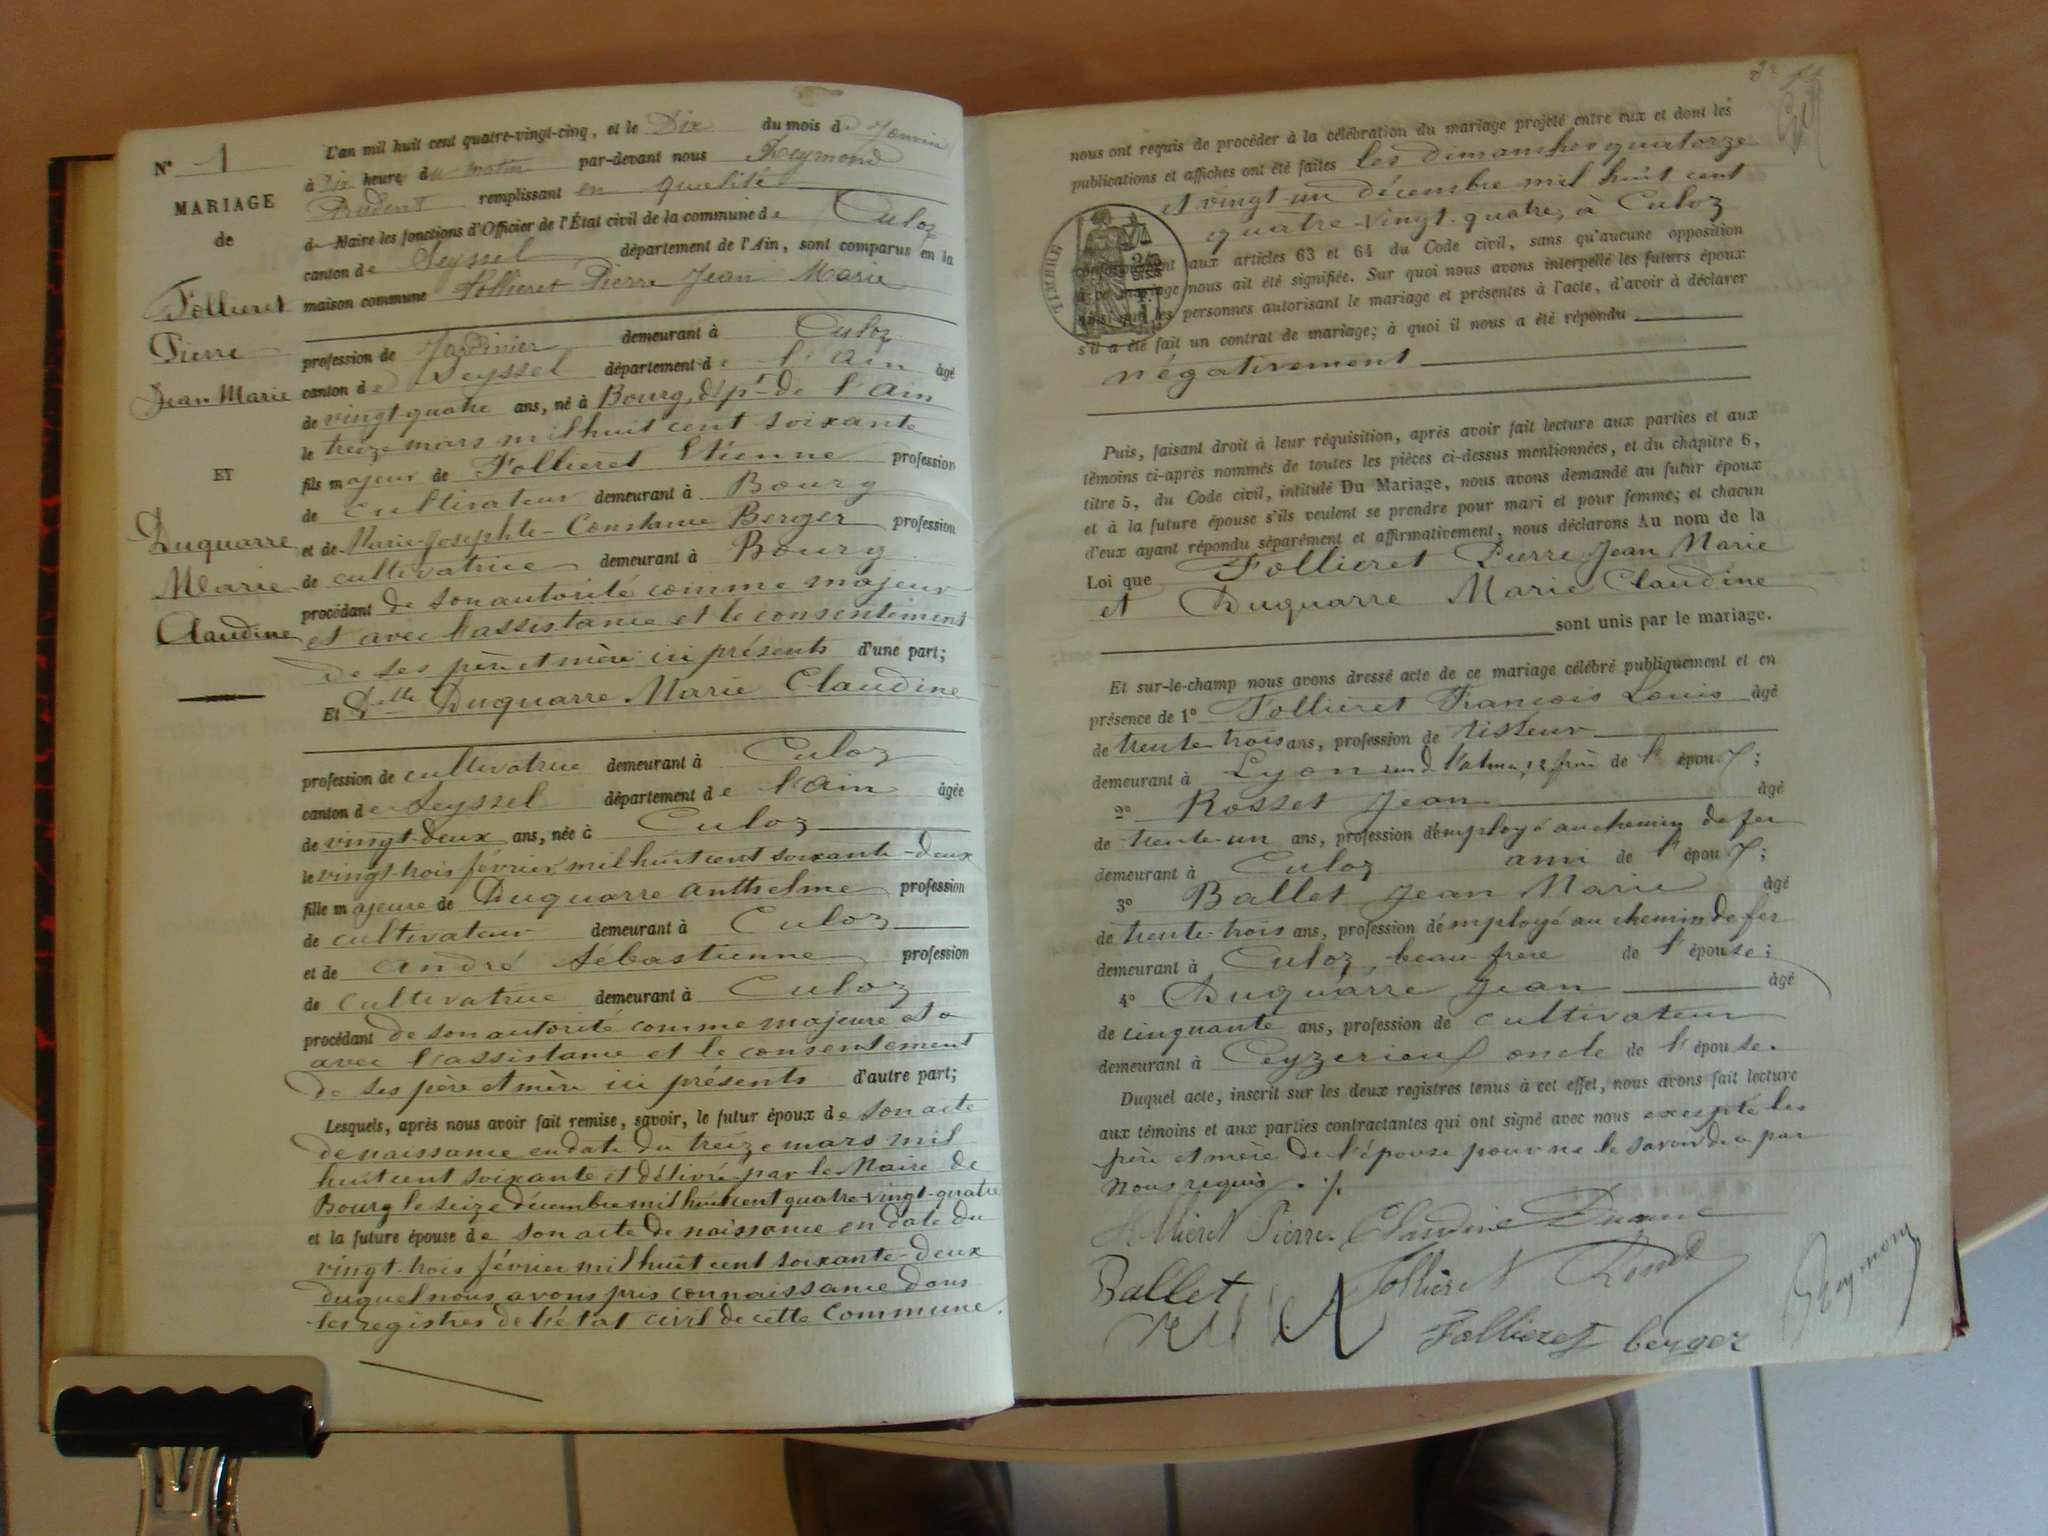 N° 1
MARIAGE
de
Follieret
Pierre
Jean Marie
ET
Duquarre
Marie
Claudine
L'an mil huit cent quatre-vingt-cinq, et le Dix du mois de Janvier
à Dix heures du matin par-devant nous Reymond
Prudent remplissant en qualité
de Maire les fonctions d'Officier de l'État civil de la commune de Culoz
canton de Seyssel département de l'Ain, sont comparus en la
maison commune Follieret Pierre Jean Marie
profession de Jardinier demeurant à Culoz
canton de Seyssel département de l'Ain âgé
de vingt-quatre ans, né à Bourg, dépt de l'Ain
le treize mars mil huit cent soixante
fils majeur de Follieret Etienne profession
de cultivateur demeurant à Bourg
et de Marie-Josephte-Constance Berger profession
de cultivatrice demeurant à Bourg
procédant de son autorité comme majeur
et avec l'assistance et le consentement
de ses père et mère ici présents d'une part;
Et Delle Duquarre Marie Claudine
profession de cultivatrice demeurant à Culoz
canton de Seyssel département de l'Ain âgée
de vingt-deux ans, née à Culoz
le vingt-trois février mil huit cent soixante-deux
fille majeure de Duquarre Anthelme profession
de cultivateur demeurant à Culoz
et de André Sébastienne profession
de cultivatrice demeurant à Culoz
procédant de son autorité comme majeure et
avec l'assistance et le consentement
de ses père et mère ici présents d'autre part;
Lesquels, après nous avoir fait remise, savoir, le futur époux de son acte
de naissance en date du treize mars mil
huit cent soixante et délivré par le Maire de
Bourg le seize décembre mil huit cent quatre-vingt-quatre
et la future épouse de son acte de naissance en date du
vingt-trois février mil huit cent soixante-deux
duquel nous avons pris connaissance dans
les registres de l'état civil de cette Commune.
nous ont requis de procéder à la célébration du mariage projeté entre eux et dont les
publications et affiches ont été faites les dimanches quatorze
et vingt-un décembre mil huit cent
quatre-vingt-quatre, à Culoz
TIMBRE
conformément aux articles 63 et 64 du Code civil, sans qu'aucune opposition
à ce mariage nous ait été signifiée. Sur quoi nous avons interpellé les futurs époux
ainsi que les personnes autorisant le mariage et présentes à l'acte, d'avoir à déclarer
s'il a été fait un contrat de mariage; à quoi il nous a été répondu
négativement
Puis, faisant droit à leur réquisition, après avoir fait lecture aux parties et aux
témoins ci-après nommés de toutes les pièces ci-dessus mentionnées, et du chapitre 6,
titre 5, du Code civil, intitulé Du Mariage, nous avons demandé au futur époux
et à la future épouse s'ils veulent se prendre pour mari et pour femme; et chacun
d'eux ayant répondu séparément et affirmativement, nous déclarons Au nom de la
Loi que Follieret Pierre Jean Marie
et Duquarre Marie Claudine
sont unis par le mariage.
Et sur-le-champ nous avons dressé acte de ce mariage célébré publiquement et en
présence de 1° Follieret François Louis âgé
de trente-trois ans, profession de tisseur
demeurant à Lyon frère de l'époux;
2° Rosset Jean âgé
de trente-un ans, profession d'employé au chemin de fer
demeurant à Culoz ami de l'époux;
3° Ballet Jean Marie âgé
de trente-trois ans, profession d'employé au chemin de fer
demeurant à Culoz, beau-frère de l'épouse;
4° Duquarre Jean âgé
de cinquante ans, profession de cultivateur
demeurant à Ceyzerieux oncle de l'épouse.
Duquel acte, inscrit sur les deux registres tenus à cet effet, nous avons fait lecture
aux témoins et aux parties contractantes qui ont signé avec nous excepté les
père et mère de l'épouse pour ne le savoir de ce par
Nous requis ./.
Follieret Pierre. Claudine
Ballet Follieret
Follieret berger
Reymond